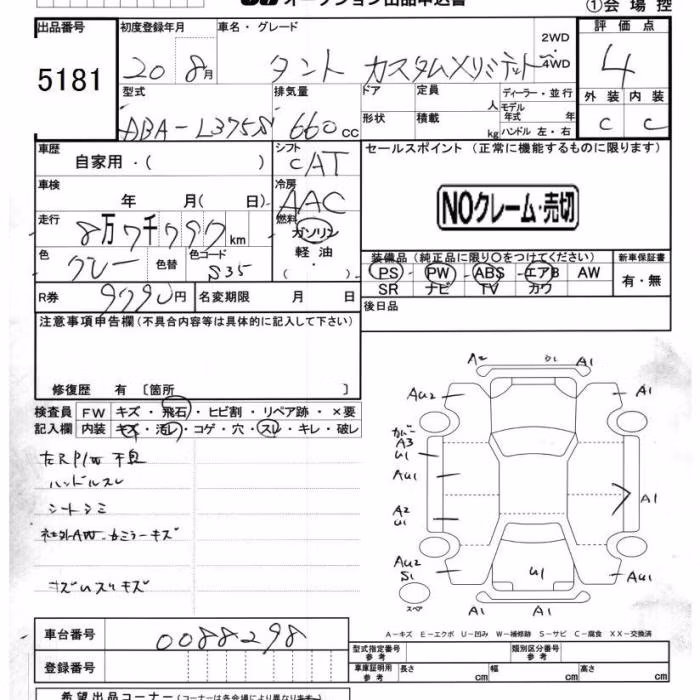 オークション出品申込書
①会場控
出品番号 初度登録年月 車名・グレード 評価点
5181
20年8月 タント カスタムXリミテッド 2WD・4WD 4
型式 排気量 ドア 定員 人 ディーラー・並行 外装 内装
モデル年式 年
ABA-L375S 660cc 形状 積載 kg ハンドル 左・右 C C
車歴 自家用・( ) シフト CAT セールスポイント (正常に機能するものに限ります)
車検 年 月( 日) 冷房 AAC NOクレーム・売切
走行 8万7千797km 燃料 ガソリン 軽油 (・)
色 グレー 色替 色コード S35
装備品 (純正品に限り○をつけてください) 新車保証書
PS PW ABS エアB AW 有・無
SR ナビ TV カワ
R券 9790円 名変期限 月 日 後日品
注意事項申告欄 (不具合内容等は具体的に記入して下さい)
修復歴 有 〔箇所 〕
検査員 FW キズ・飛石・ヒビ割・リペア跡・×要
記入欄 内装 キズ・汚レ・コゲ・穴・スレ・キレ・破レ
左RP/W不良
ハンドルスレ
シートシミ
社外AW カラーキズ
A2 A1
AU2 A1
カバー
A3
U1
AU1 A1
A2
U1
AU2
S1 U1 AU1
スペア A1 A1
A-キズ E-エクボ U-凹み W-補修跡 S-サビ C-腐食 XX-交換済
車台番号 0088298
型式指定番号 参考 類別区分番号 参考
登録番号 車庫証明用 参考 長さ cm 幅 cm 高さ cm
希望出品コーナー